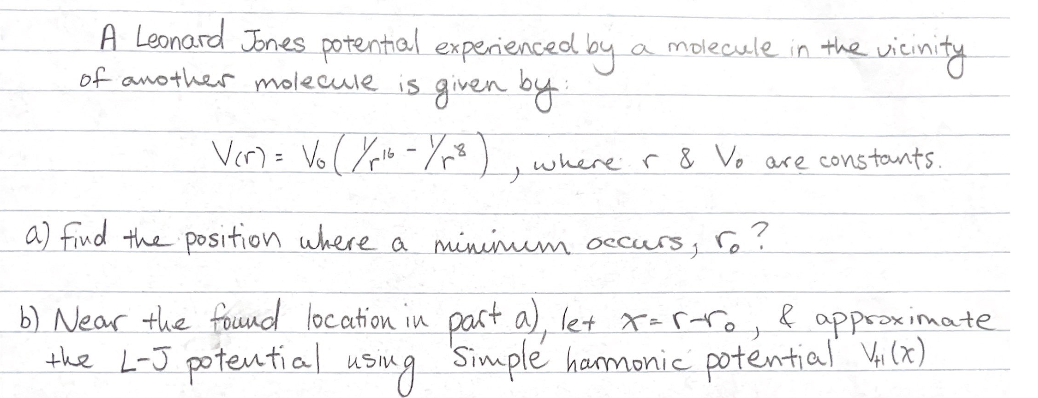 A Leonard Jones potential experienced by a molecule in the vicinity
of another molecule is given by:
V(r) = V₀ ( 1/r¹⁶ - 1/r⁸ ) , where r & V₀ are constants.
a) find the position where a minimum occurs, r₀ ?
b) Near the found location in part a), let x = r-r₀ , & approximate
the L-J potential using Simple harmonic potential V_H(x)